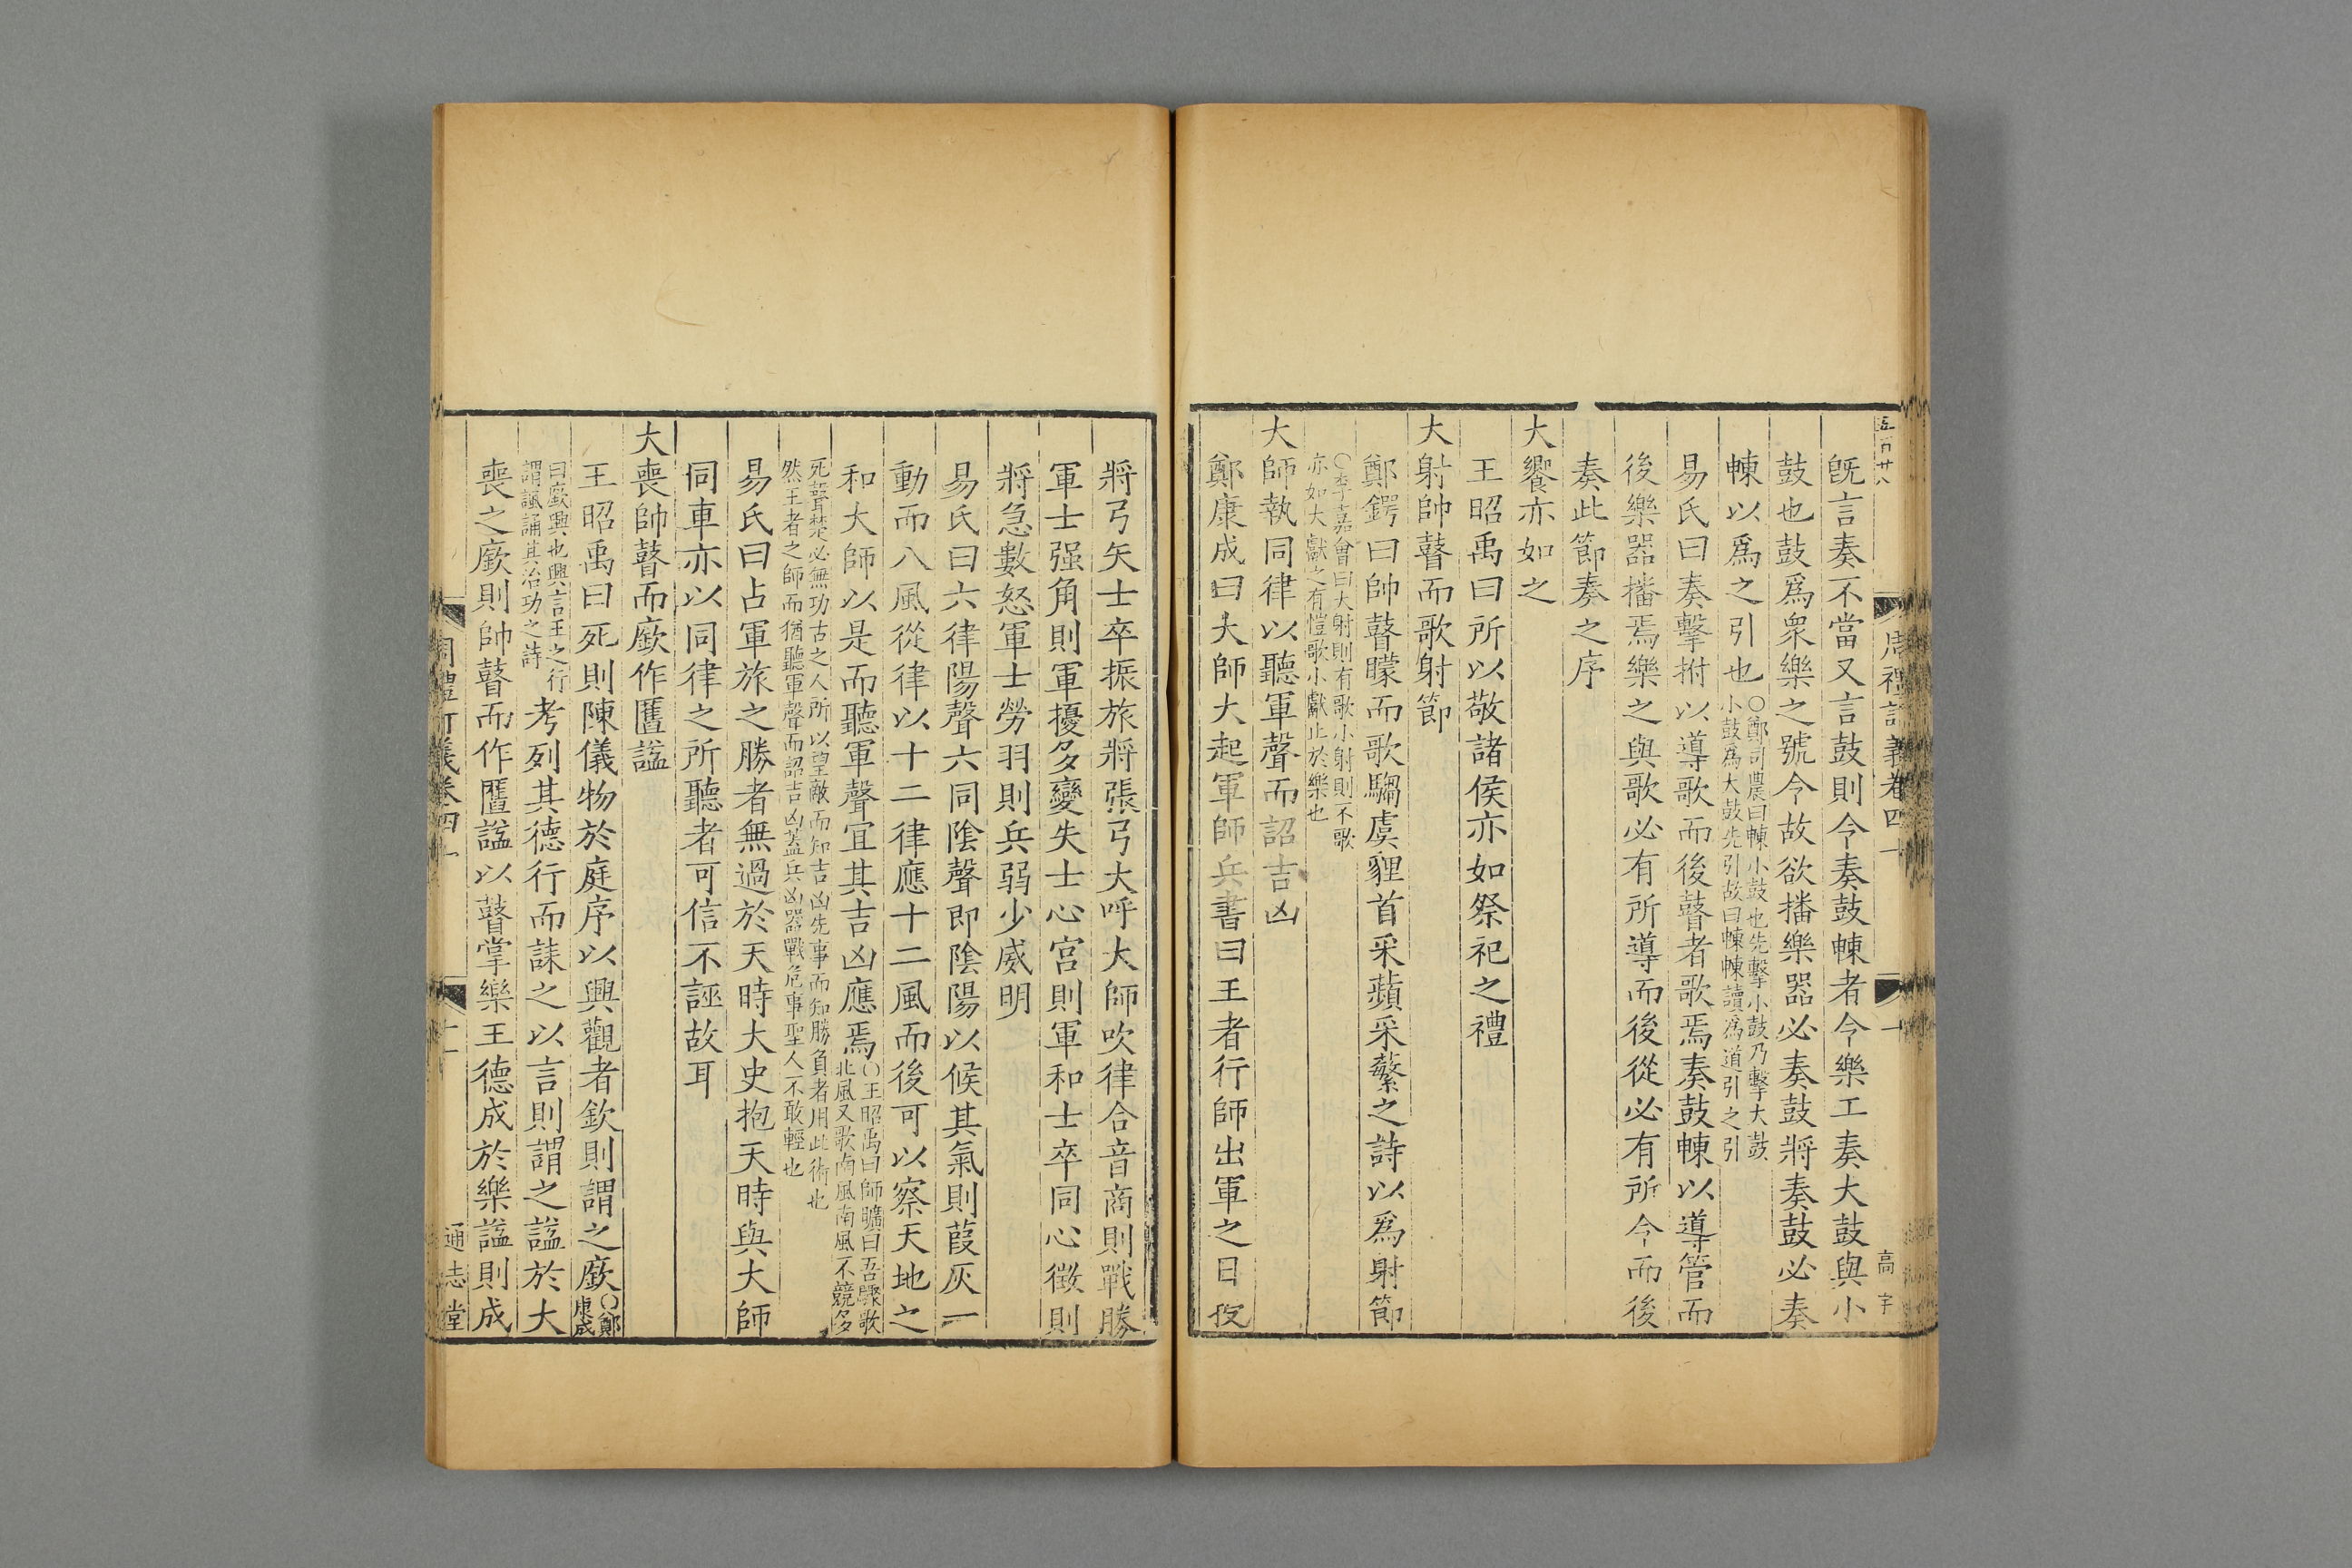 五百廿八
周禮訂義卷四十
十一
高宇
旣言奏不當又言鼓則令奏鼓㯥者令樂工奏大鼓與小
鼓也鼓爲衆樂之號令故欲播樂器必奏鼓將奏鼓必奏
㯥以爲之引也
○鄭司農曰㯥小鼓也先擊小鼓乃擊大鼓
小鼓爲大鼓先引故曰㯥㯥讀爲道引之引
易氏曰奏擊拊以導歌而後瞽者歌焉奏鼓㯥以導管而
後樂器播焉樂之與歌必有所導而後從必有所令而後
奏此節奏之序
大饗亦如之
王昭禹曰所以敬諸侯亦如祭祀之禮
大射帥瞽而歌射節
鄭鍔曰帥瞽矇而歌騶虞貍首采蘋采蘩之詩以爲射節
○李嘉會曰大射則有歌小射則不歌
亦如大獻之有愷歌小獻止於樂也
大師執同律以聽軍聲而詔吉凶
鄭康成曰大師大起軍師兵書曰王者行師出軍之日授
將弓矢士卒振旅將張弓大呼大師吹律合音商則戰勝
軍士强角則軍擾多變失士心宮則軍和士卒同心徵則
將急數怒軍士勞羽則兵弱少威明
易氏曰六律陽聲六同陰聲即陰陽以候其氣則葭灰一
動而八風從律以十二律應十二風而後可以察天地之
和大師以是而聽軍聲宜其吉凶應焉
○王昭禹曰師曠曰吾驟歌
北風又歌南風南風不競多
死聲楚必無功古之人所以望敵而知吉凶先事而知勝負者用此術也
然王者之師而猶聽軍聲而詔吉凶蓋兵凶器戰危事聖人不敢輕也
易氏曰占軍旅之勝者無過於天時大史抱天時與大師
同車亦以同律之所聽者可信不誣故耳
大喪帥瞽而廞作匶謚
王昭禹曰死則陳儀物於庭序以興觀者欽則謂之廞
○鄭
康成
曰廞興也興言王之行
謂諷誦其治功之詩
考列其德行而誄之以言則謂之謚於大
喪之廞則帥瞽而作匶謚以瞽掌樂王德成於樂謚則成
周禮訂義卷四十
十一
通志堂